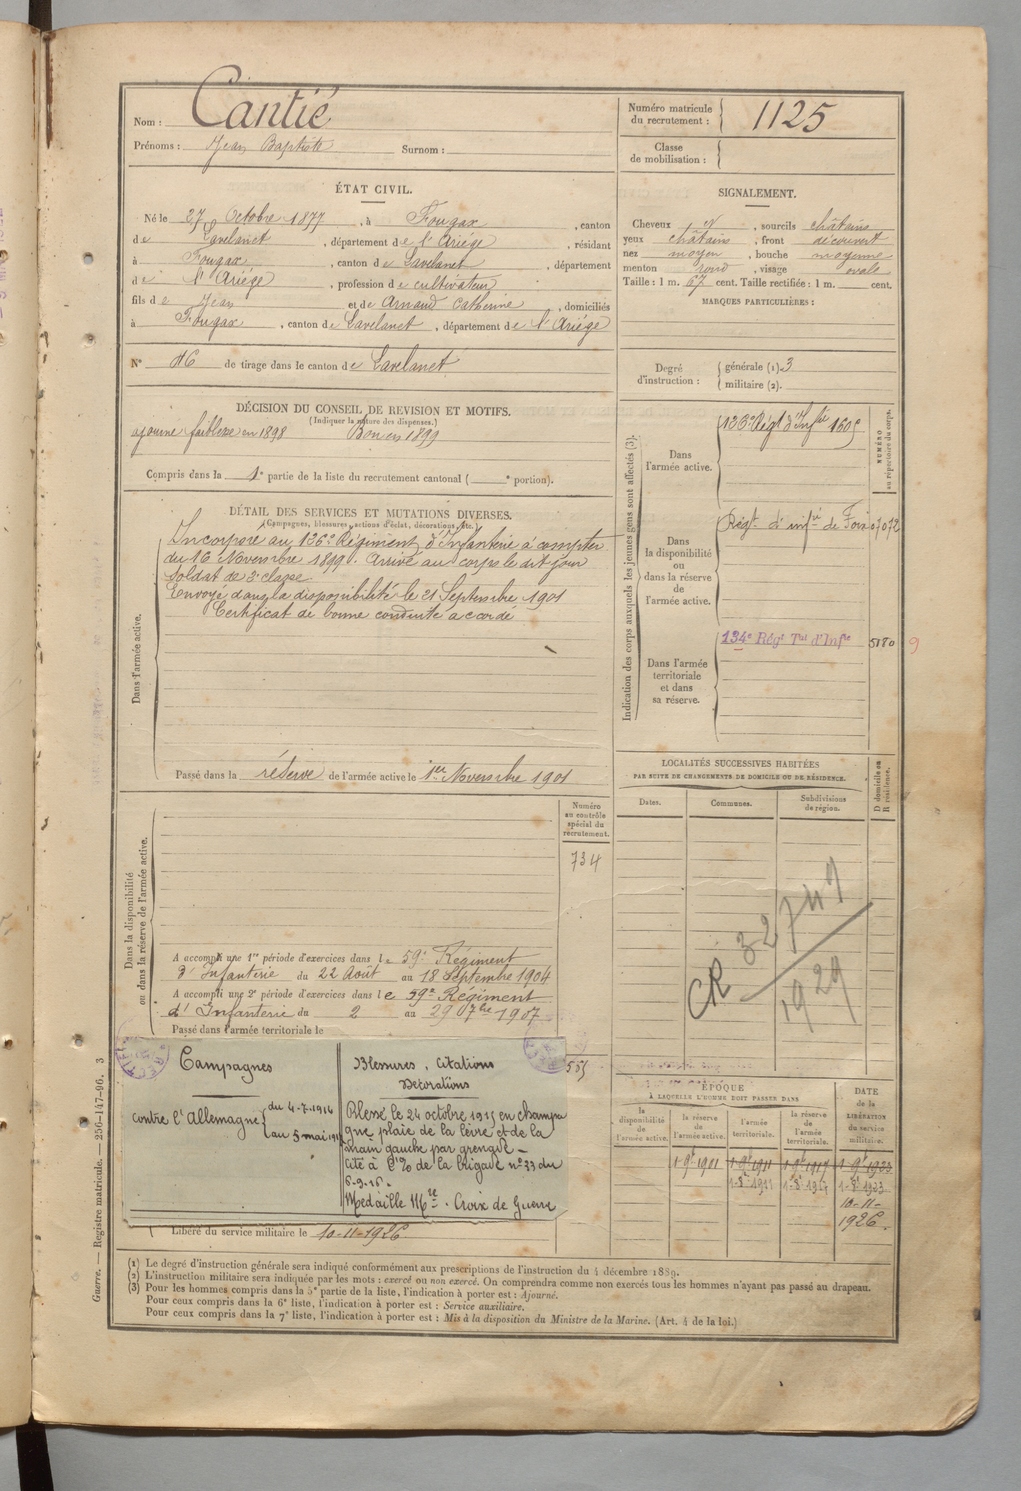 Nom : Cantié
Prénoms : Jean Baptiste Surnom :
Numéro matricule du recrutement : 1125
Classe de mobilisation :
ÉTAT CIVIL.
Né le 27 Octobre 1877, à Fougax, canton
de Lavelanet, département de l'Ariége, résidant
à Fougax, canton de Lavelanet, département
de l'Ariége, profession de cultivateur
fils de Jean et de Arnaud Catherine, domiciliés
à Fougax, canton de Lavelanet, département de l'Ariége
N° 46 de tirage dans le canton de Lavelanet
SIGNALEMENT.
Cheveux et, sourcils châtains
yeux châtains, front découvert
nez moyen, bouche moyenne
menton rond, visage ovale
Taille : 1 m. 67 cent. Taille rectifiée : 1 m. cent.
MARQUES PARTICULIÈRES :
Degré d'instruction : générale (1) 3
militaire (2).
DÉCISION DU CONSEIL DE REVISION ET MOTIFS.
(Indiquer la nature des dispenses.)
ajourné faiblesse en 1898 Bon en 1899
Compris dans la 1e partie de la liste du recrutement cantonal ( e portion).
DÉTAIL DES SERVICES ET MUTATIONS DIVERSES.
(Campagnes, blessures, actions d'éclat, décorations, etc.)
Dans l'armée active.
Incorporé au 136e Régiment d'Infanterie à compter
du 16 Novembre 1899. Arrivé au corps le dit jour
Soldat de 2e classe.
Envoyé dans la disponibilité le 21 Septembre 1901
Certificat de bonne conduite accordé
Passé dans la réserve de l'armée active le 1er Novembre 1901
Indication des corps auxquels les jeunes gens sont affectés (3).
NUMÉRO au répertoire du corps.
Dans l'armée active.
136e Régt d'Infie 1605
Dans la disponibilité ou dans la réserve de l'armée active.
Régt d'infie de Foix 07072
Dans l'armée territoriale et dans sa réserve.
134e Régt Tal d'Infie 5180 9
LOCALITÉS SUCCESSIVES HABITÉES
PAR SUITE DE CHANGEMENTS DE DOMICILE OU DE RÉSIDENCE.
Dates. Communes. Subdivisions de région. D domicile ou R résidence.
CR 32749
1929
Dans la disponibilité ou dans la réserve de l'armée active.
Numéro au contrôle spécial du recrutement.
734
A accompli une 1re période d'exercices dans le 59e Régiment
d'Infanterie du 22 Août au 18 Septembre 1904
A accompli une 2e période d'exercices dans le 59e Régiment
d'Infanterie du 2 au 29 07bre 1907
Passé dans l'armée territoriale le
Campagnes
contre l'Allemagne
Blessures, Citations
Décorations
Blessé le 24 octobre 1915 en champa
gne plaie de la lèvre et de la
main gauche par grenade -
Cité à l'o/o de la brigade n° 33 du
6-9-16-
Médaille Mre - Croix de Guerre
Libéré du service militaire le 10-11-1926
ÉPOQUE
À LAQUELLE L'HOMME DOIT PASSER DANS
la disponibilité de l'armée active. la réserve de l'armée active. l'armée territoriale. la réserve de l'armée territoriale.
DATE de la LIBÉRATION du service militaire.
10-11-
1926.
(1) Le degré d'instruction générale sera indiqué conformément aux prescriptions de l'instruction du 4 décembre 1889.
(2) L'instruction militaire sera indiquée par les mots : exercé ou non exercé. On comprendra comme non exercés tous les hommes n'ayant pas passé au drapeau.
(3) Pour les hommes compris dans la 5e partie de la liste, l'indication à porter est : Ajourné.
Pour ceux compris dans la 6e liste, l'indication à porter est : Service auxiliaire.
Pour ceux compris dans la 7e liste, l'indication à porter est : Mis à la disposition du Ministre de la Marine. (Art. 4 de la loi.)
Guerre. — Registre matricule. — 256-147-96. 3